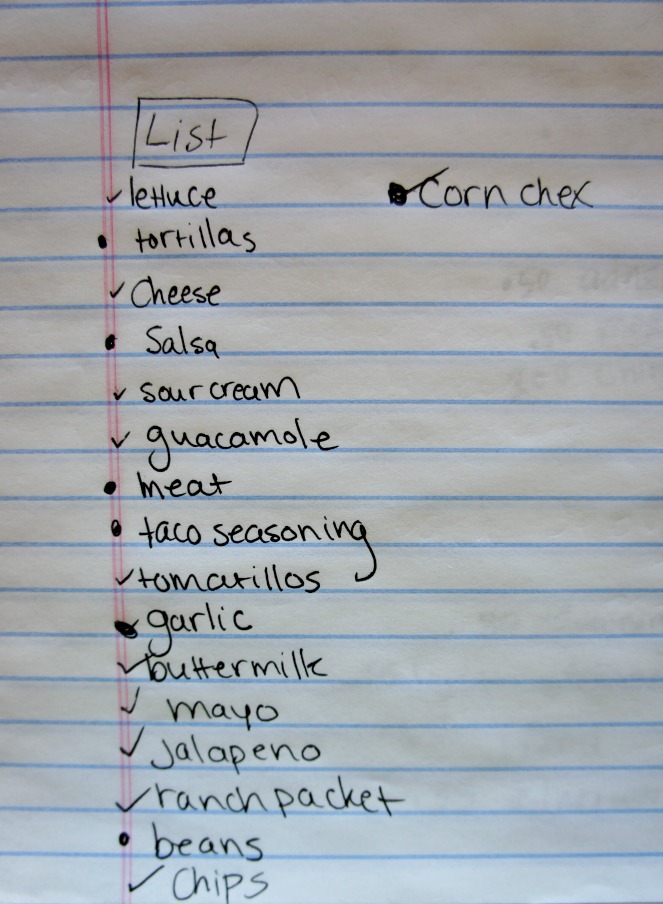 List
✓ lettuce
• tortillas
✓ Cheese
• Salsa
✓ sour cream
✓ guacamole
• meat
• taco seasoning
✓ tomatillos
• garlic
✓ buttermilk
✓ mayo
✓ Jalapeno
✓ ranch packet
• beans
✓ Chips
• Corn chex